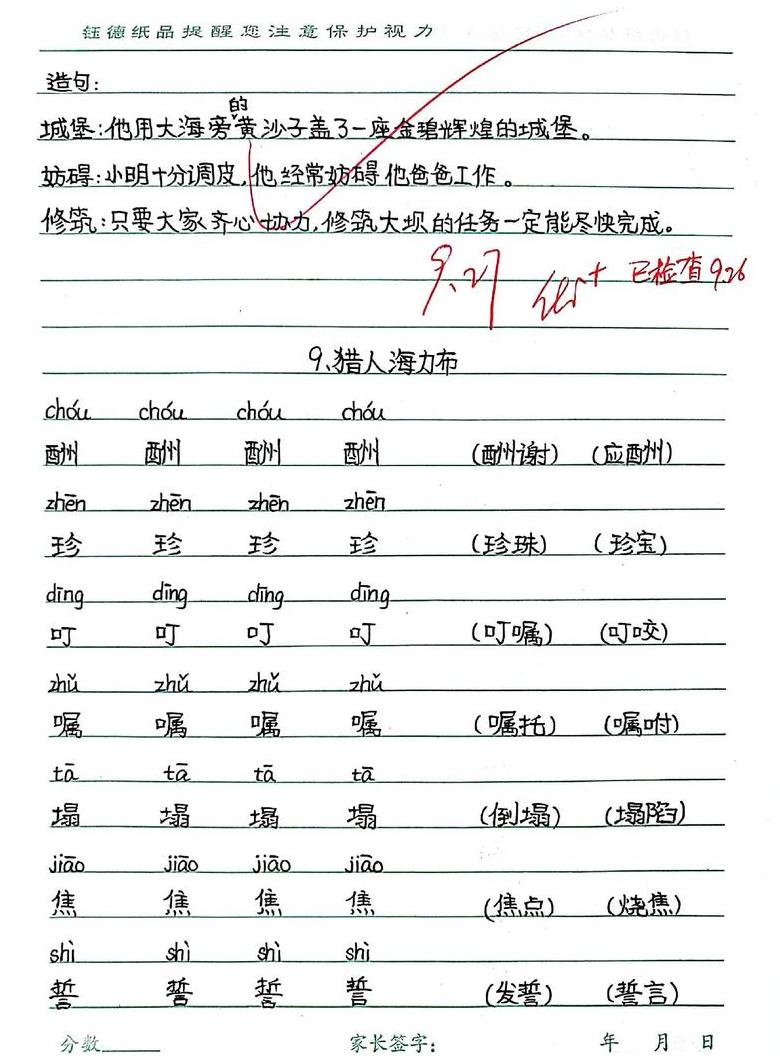 钰德纸品提醒您注意保护视力
造句:
城堡:他用大海旁的黄沙子盖了一座金碧辉煌的城堡。
妨碍:小明十分调皮,他经常妨碍他爸爸工作。
修筑:只要大家齐心协力,修筑大坝的任务一定能尽快完成。
9.27 已检查9.26
9、猎人海力布
chóu chóu chóu chóu
酬 酬 酬 酬 (酬谢) (应酬)
zhēn zhēn zhēn zhēn
珍 珍 珍 珍 (珍珠) (珍宝)
dīng dīng dīng dīng
叮 叮 叮 叮 (叮嘱) (叮咬)
zhǔ zhǔ zhǔ zhǔ
嘱 嘱 嘱 嘱 (嘱托) (嘱咐)
tā tā tā tā
塌 塌 塌 塌 (倒塌) (塌陷)
jiāo jiāo jiāo jiāo
焦 焦 焦 焦 (焦点) (烧焦)
shì shì shì shì
誓 誓 誓 誓 (发誓) (誓言)
分数 家长签字: 年 月 日